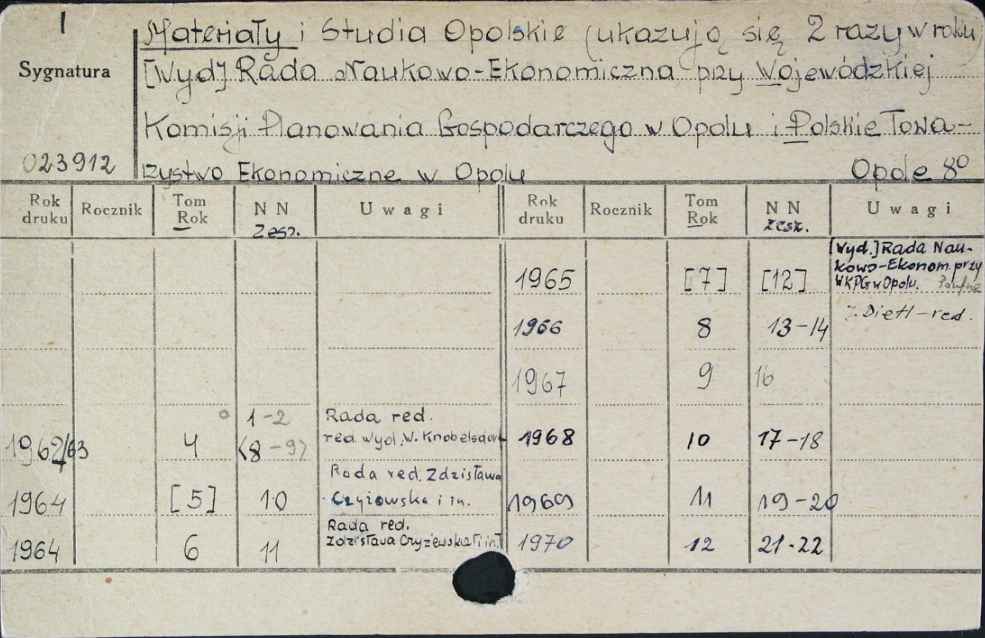 I
Sygnatura
023912
Materiały i Studia Opolskie (ukazują się 2 razy w roku)
[Wyd] Rada Naukowo-Ekonomiczna przy Wojewódzkiej
Komisji Planowania Gospodarczego w Opolu i Polskie Towa-
rzystwo Ekonomiczne w Opolu Opole 8°
Rok druku Rocznik Tom Rok NN zesz. Uwagi Rok druku Rocznik Tom Rok NN zesz. Uwagi
1965 [7] [12] [Wyd.] Rada Nau-
kowo-Ekonom. przy
WKPG w Opolu.
1966 8 13-14 Dietl-red.
1967 9 16
1962/63 4 1-2 (8-9) Rada red.
red. wyd. W. Knobelsdorf
1968 10 17-18
1964 [5] 10 Rada red. Zdzisława
Czyżowska i in.
1969 11 19-20
1964 6 11 Rada red.
Zdzisława Czyżewska i in.
1970 12 21-22